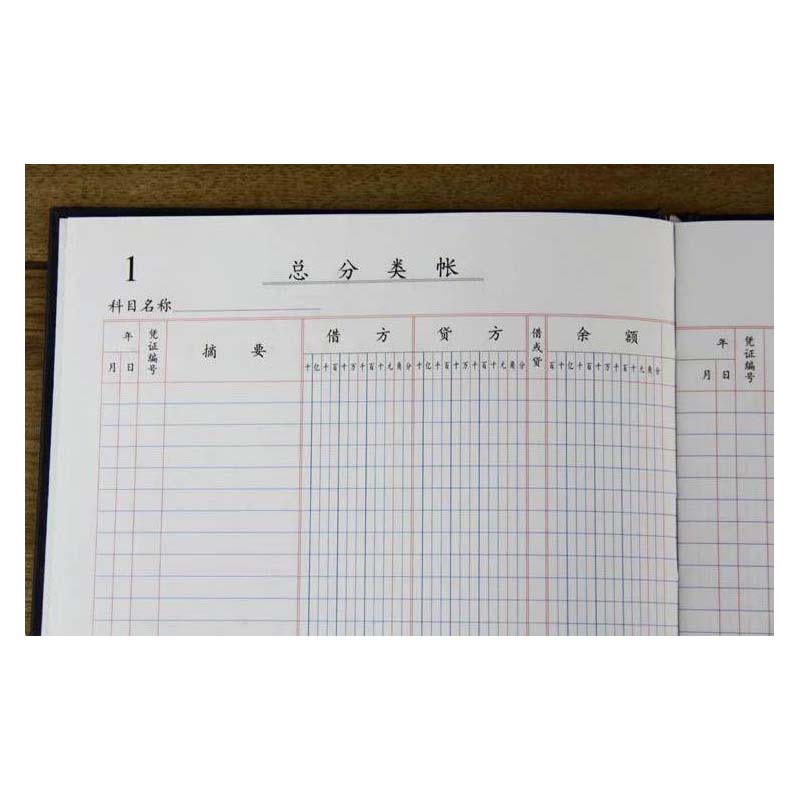 1
总分类帐
科目名称
年 凭证编号 摘要 借方 贷方 借或贷 余额 年 凭证编号
月 日 十亿千百十万千百十元角分 十亿千百十万千百十元角分 百十亿千百十万千百十元角分 月 日